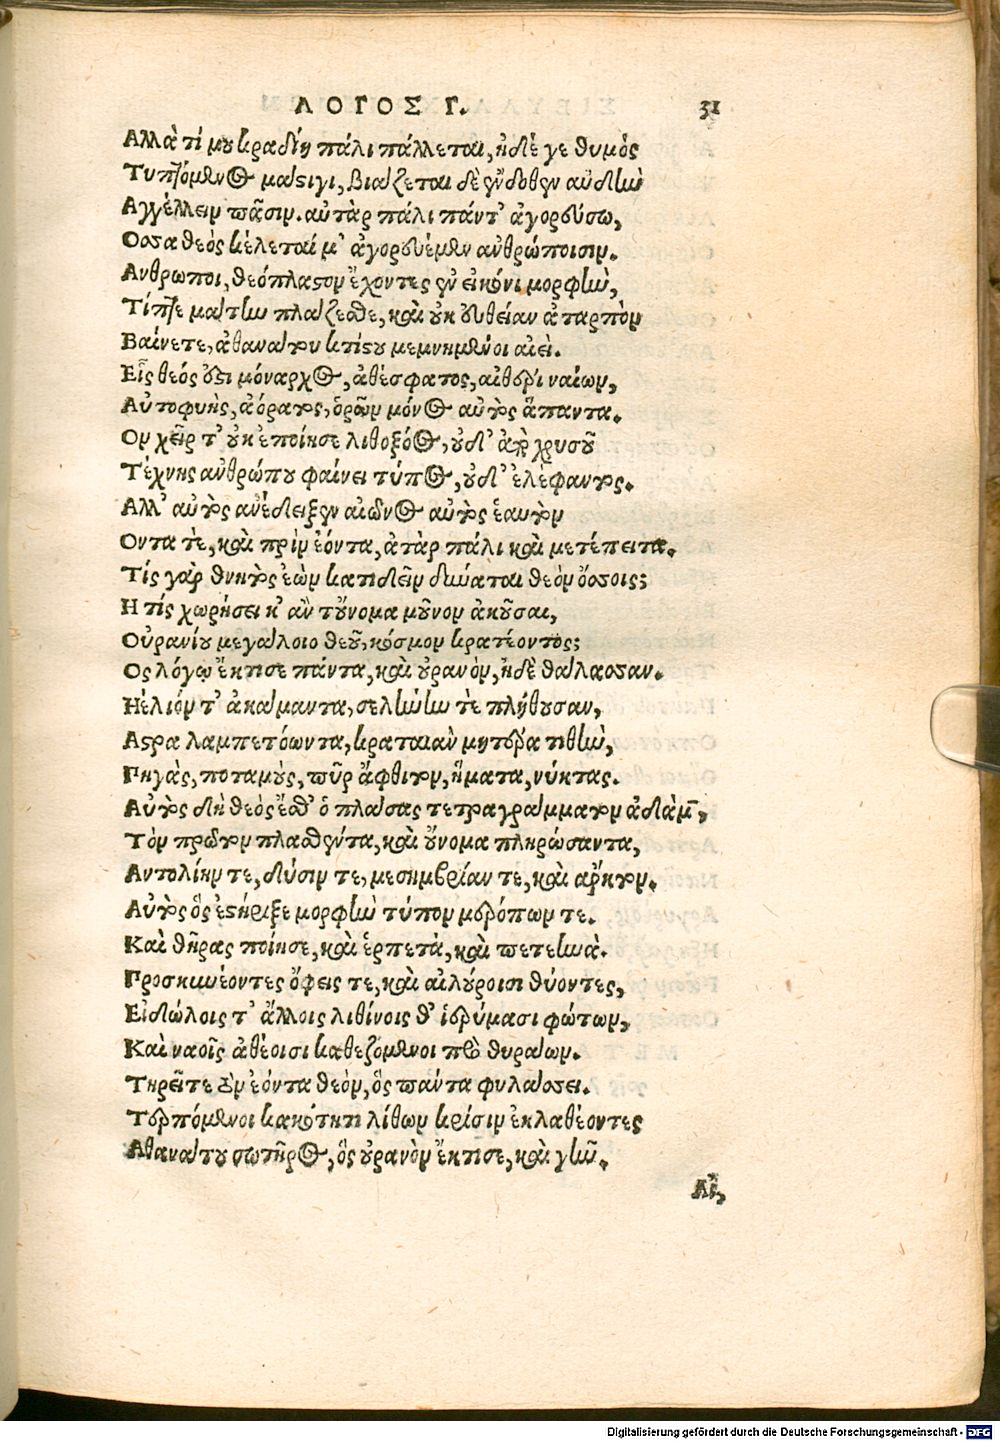 ΛΟΓΟΣ Γ. 31
Αλλὰ τί μου κραδίη πάλι πάλλεται, ἠδέ γε θυμὸς
Τυπτόμενος μάστιγι, βιάζεται δὲ ἔνδοθεν αὐδὴν
Αγγέλλειν πᾶσιν. αὐτὰρ πάλι πάντ' ἀγορεύσω,
Οσσα θεὸς κέλεταί μ' ἀγορευέμεν ἀνθρώποισιν.
Ανθρωποι, θεόπλαστον ἔχοντες ἐν εἰκόνι μορφὴν,
Τίπτε μάτην πλάζεσθε, καὶ οὐκ εὐθεῖαν ἀταρπὸν
Βαίνετε, ἀθανάτου κτίστου μεμνημένοι αἰεὶ.
Εἷς θεός ἐστι μόναρχος, ἀθέσφατος, αἰθέρι ναίων,
Αὐτοφυὴς, ἀόρατος, ὁρῶν μόνος αὐτὸς ἅπαντα.
Ον χεῖρ τ' οὐκ ἐποίησε λιθοξόος, οὐδ' ἀπὸ χρυσοῦ
Τέχνης ἀνθρώπου φαίνει τύπος, οὐδ' ἐλέφαντος.
Αλλ' αὐτὸς ἀνέδειξεν αἰῶνος αὐτὸς ἑαυτὸν
Οντα τὲ, καὶ πρὶν ἐόντα, ἀτὰρ πάλι καὶ μετέπειτα.
Τίς γὰρ θνητὸς ἐὼν κατιδεῖν δύναται θεὸν ὄσσοις;
Η τίς χωρήσει κ' ἂν τοὔνομα μοῦνον ἀκοῦσαι,
Οὐρανίου μεγάλοιο θεοῦ, κόσμον κρατέοντος;
Ος λόγῳ ἔκτισε πάντα, καὶ οὐρανὸν, ἠδὲ θάλασσαν.
Ηέλιόν τ' ἀκάμαντα, σελήνην τὲ πλήθουσαν,
Αστρα λαμπετόωντα, κραταιὰν μητέρα τιθὴν,
Πηγὰς, ποταμοὺς, πῦρ ἄφθιτον, ἤματα, νύκτας.
Αὐτὸς δὴ θεὸς ἔσθ' ὁ πλάσας τετραγράμματον ἀδὰμ,
Τὸν πρῶτον πλασθέντα, καὶ οὔνομα πληρώσαντα,
Αντολίην τε, δύσιν τε, μεσημβρίαν τε, καὶ ἄρκτον.
Αὐτὸς ὃς ἐστήριξε μορφὴν τύπον μερόπων τε.
Καὶ θῆρας ποίησε, καὶ ἑρπετὰ, καὶ πετεηνὰ.
Προσκυνέοντες ὄφεις τε, καὶ αἰλούροισι θύοντες,
Εἰδώλοις τ' ἄλλοις λιθίνοις θ' ἱδρύμασι φώτων,
Καὶ ναοῖς ἀθέοισι καθεζόμενοι πρὸ θυράων.
Τηρεῖτε τὸν ἐόντα θεὸν, ὃς πάντα φυλάσσει.
Τερπόμενοι κακότητι λίθων κρίσιν ἐκλαθέοντες
Αθανάτου σωτῆρος, ὃς οὐρανὸν ἔκτισε, καὶ γῆν.
Αἲ,
Digitalisierung gefördert durch die Deutsche Forschungsgemeinschaft - DFG